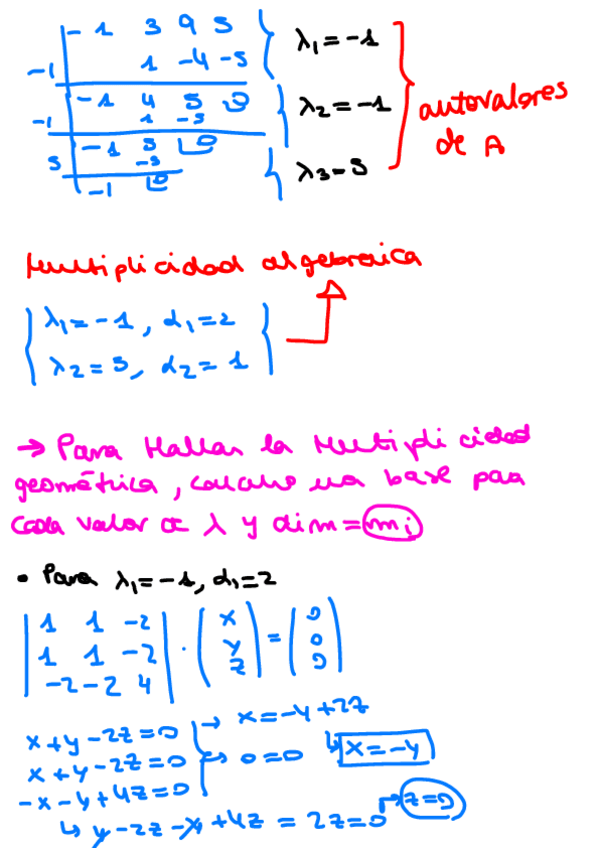 -1 3 9 5 λ₁=-1
-1 1 -4 -5
-1 4 5 0 λ₂=-1 autovalores
-1 1 -5 de A
-1 5 0
5 -5 λ3=5
-1 0
Multiplicidad algebraica
λ₁=-1, α₁=2
λ₂=5, α₂=1
→ Para Hallar la Multiplicidad
geométrica, calculo una base para
cada valor de λ y dim=mᵢ
• Para λ₁=-1, α₁=2
1 1 -2 x 0
1 1 -2 · y = 0
-2 -2 4 z 0
x+y-2z=0 → x=-y+2z
x+y-2z=0 ↔ 0=0 ↳ x=-y
-x-y+4z=0
↳ y-2z-y+4z = 2z=0 → z=0